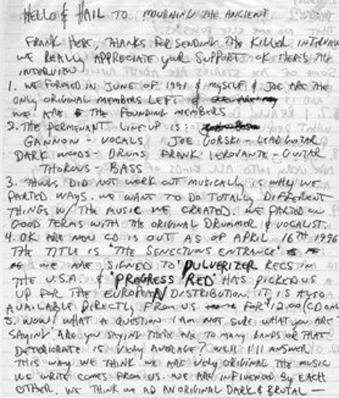 HELLO & HAIL TO MOURNING THE ANCIENT
FRANK HERE, THANKS FOR SENDING THE KILLER INTERVIEW
WE REALLY APPRECIATE YOUR SUPPORT. OK HERE'S THE
INTERVIEW
1. WE FORMED IN JUNE OF 1991 & MYSELF & JOE ARE THE
ONLY ORIGINAL MEMBERS LEFT &
WE ARE THE FOUNDING MEMBERS
2. THE PERMENANT LINE UP IS:
GANNON - VOCALS JOE GORSKI - LEAD GUITAR
DARK WOODS - DRUMS FRANK LEROVANTE - GUITAR
THOROUS - BASS
3. THINGS DID NOT WORK OUT MUSICALLY IS WHY WE
PARTED WAYS. WE WANT TO DO TOTALLY DIFFERENT
THINGS W/ THE MUSIC WE CREATED. WE PARTED ON
GOOD TERMS WITH THE ORIGINAL DRUMMER & VOCALIST.
4. OK OUR NEW CD IS OUT AS OF APRIL 16TH 1996
THE TITLE IS "THE SENECTUMS ENTRANCE"
WE ARE SIGNED TO PULVERIZER RECS IN
THE U.S.A. & "PROGRESS RED" HAS PICKED US
UP FOR THE EUROPEAN DISTRIBUTION. IT IS ALSO
AVAILABLE DIRECTLY FROM US FOR $12.00 (CD ONLY
5. WOW! WHAT A QUESTION. I AM NOT SURE WHAT YOU ARE
SAYING ARE YOU SAYING THERE ARE TO MANY BANDS OR THAT
DETERIORATE IS VERY AVERAGE? WELL I'LL ANSWER
THIS WAY WE THINK WE ARE VERY ORIGINAL THE MUSIC
WE WRITE COMES FROM US. WE ARE INFLUENCED BY EACH
OTHER. WE THINK WE AD AN ORIGINAL DARK & BRUTAL -